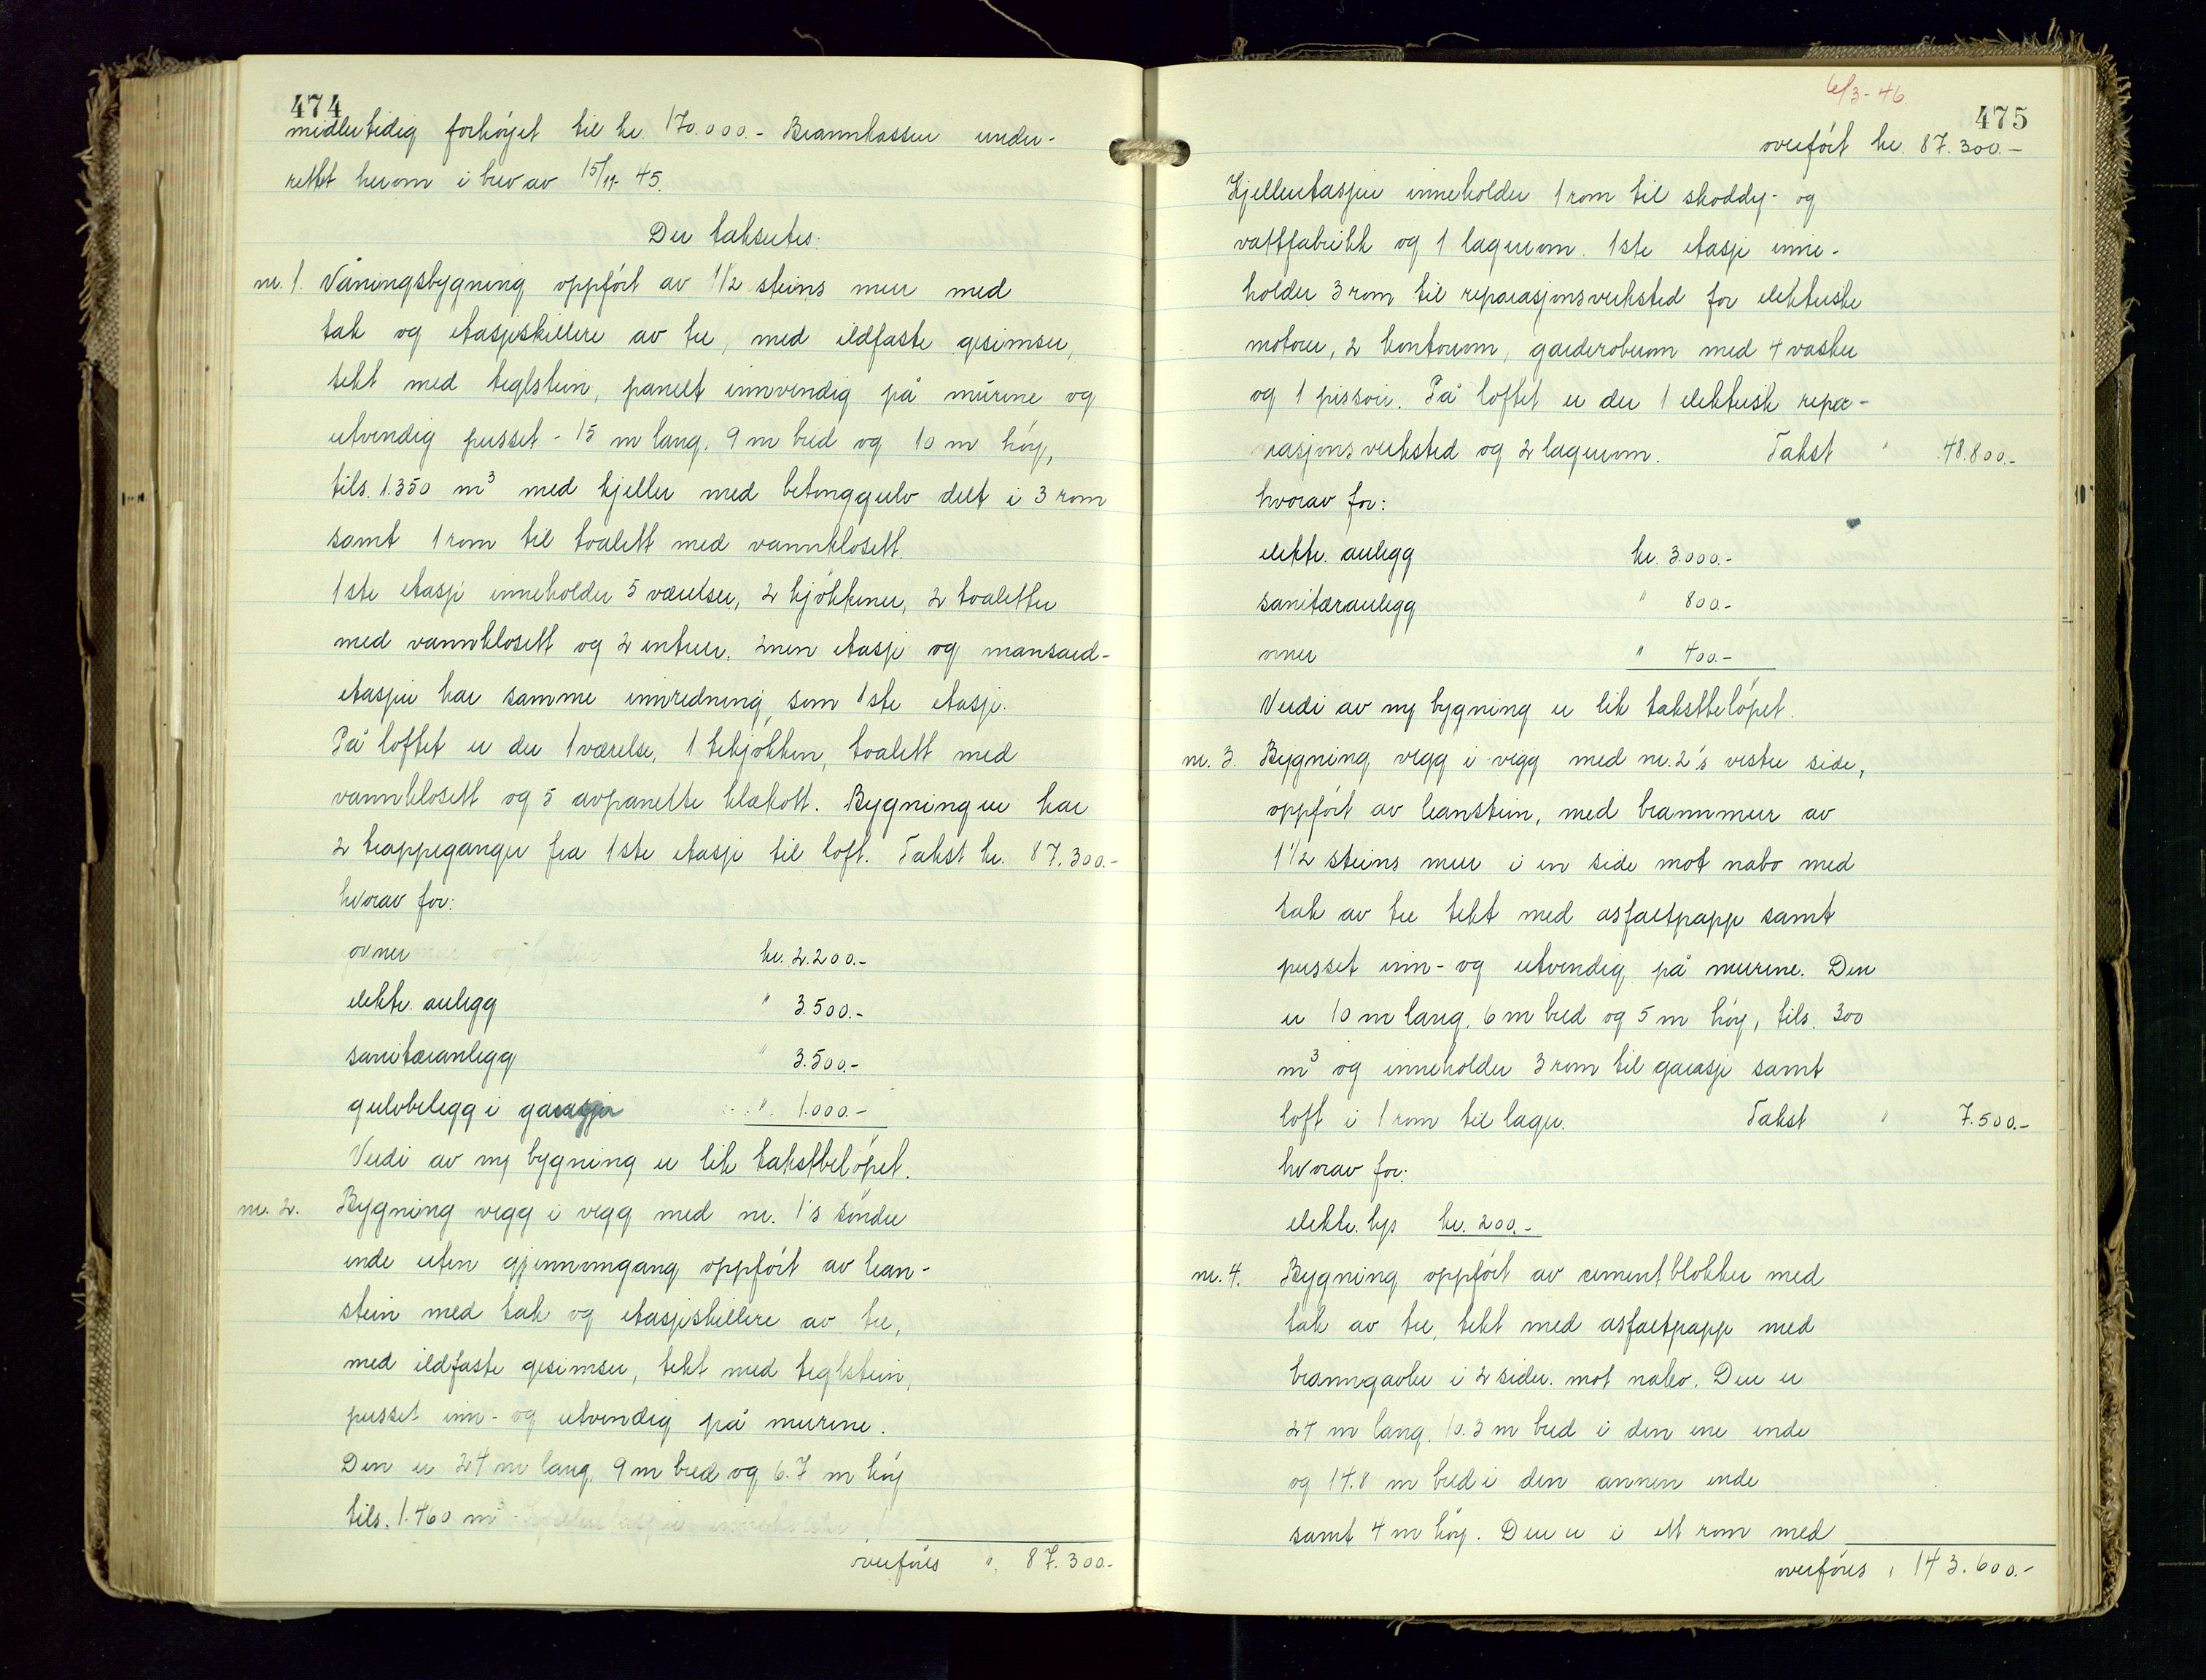 474
midlertidig forhøyet til kr. 170.000.- Brannkassen under-
rettet herom i brev av 15/11-45.
Der takseres:
nr. 1. Våningsbygning oppført av 1 1/2 steins mur med
tak og etasjeskillere av tre, med ildfaste gesimser,
tekt med teglstein, panelt innvendig på murene og
utvendig pusset - 15 m lang, 9 m bred og 10 m høy,
tils. 1.350 m³ med kjeller med betonggulv delt i 3 rom
samt 1 rom til toalett med vannklosett.
1ste etasje inneholder 5 værelser, 2 kjøkkener, 2 toaletter
med vannklosett og 2 entreer. 2nen etasje og mansard-
etasjen har samme innredning som 1ste etasje.
På loftet er der 1 værelse, 1 tekjøkken, toalett med
vannklosett og 5 avpanelte klækott. Bygningen har
2 trappeganger fra 1ste etasje til loft. Takst kr. 87.300.-
hvorav for:
ovner kr. 2.200.-
elektr. anlegg " 3.500.-
sanitæranlegg " 3.500.-
gulvbelegg i garasjer " 1.000.-
Verdi av ny bygning er lik takstbeløpet.
nr. 2. Bygning vegg i vegg med nr. 1's søndre
ende uten gjennomgang oppført av lean-
stein med tak og etasjeskillere av tre,
med ildfaste gesimser, tekt med teglstein,
pusset inn- og utvendig på murene.
Den er 24 m lang, 9 m bred og 6.7 m høy
tils. 1.460 m³
overføres " 87.300.-
6/3-46.
475
overført kr. 87.300.-
Kjelleretasjen inneholder 1 rom til shoddy- og
vattfabrikk og 1 lagerrom. 1ste etasje inne-
holder 3 rom til reparasjonsverksted for elektriske
motorer, 2 kontorrom, garderoberom med 4 vasker
og 1 pissoir. På loftet er der 1 elektrisk repa-
rasjonsverksted og 2 lagerrom. Takst " 48.800.-
hvorav for:
elektr. anlegg kr. 3.000.-
sanitæranlegg " 800.-
ovner " 400.-
Verdi av ny bygning er lik takstbeløpet.
nr. 3. Bygning vegg i vegg med nr. 2's vestre side,
oppført av leanstein, med brannmur av
1 1/2 steins mur i en side mot nabo med
tak av tre tekt med asfaltpapp samt
pusset inn- og utvendig på murene. Den
er 10 m lang, 6 m bred og 5 m høy, tils. 300
m³ og inneholder 3 rom til garasje samt
loft i 1 rom til lager. Takst " 7.500.-
hvorav for:
elektr. lys kr. 200.-
nr. 4. Bygning oppført av cementblokker med
tak av tre, tekt med asfaltpapp med
branngavler i 2 sider mot nabo. Den er
24 m lang, 10.3 m bred i den ene ende
og 14.8 m bred i den annen ende
samt 4 m høy. Den er i ett rom med
overføres " 143.600.-